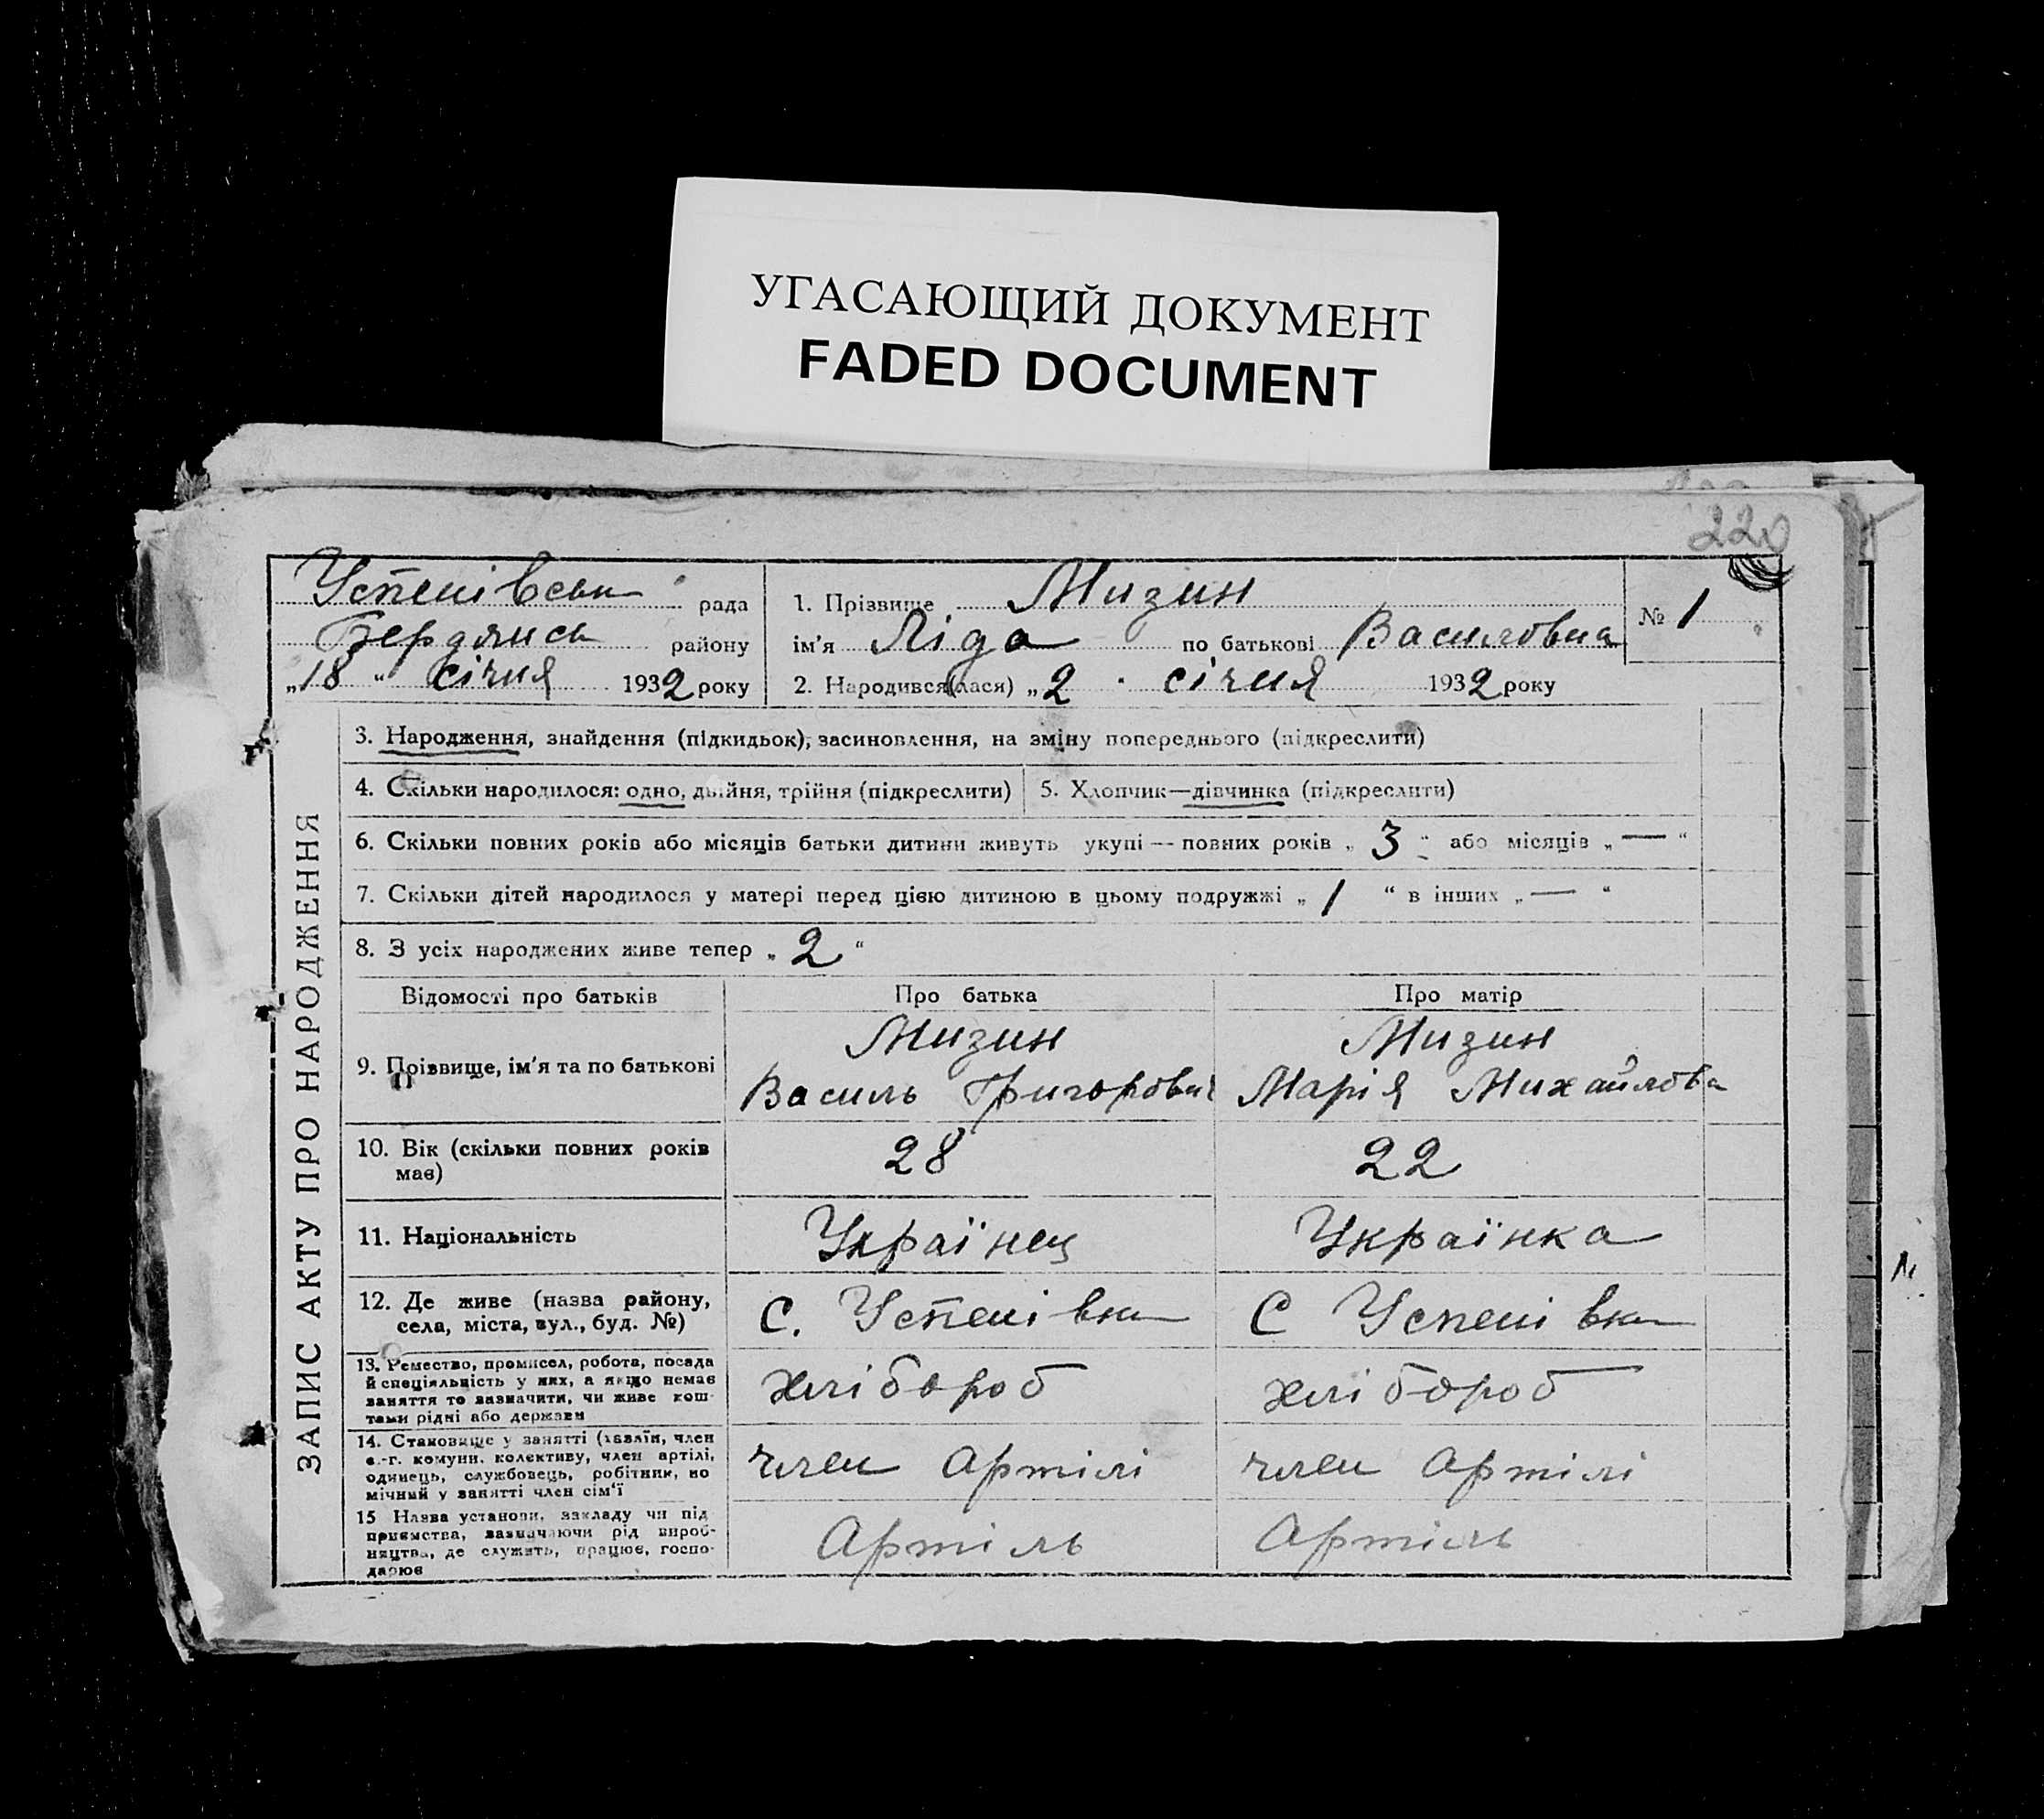 УГАСАЮЩИЙ ДОКУМЕНТ
FADED DOCUMENT
220
Успенівськ рада
Бердянск району
„18“ січня 1932 року
1. Прізвище Мизин
ім'я Ліда по батькові Василовна
№ 1
2. Народився(лася) „2 січня 1932 року
ЗАПИС АКТУ ПРО НАРОДЖЕННЯ
3. Народження, знайдення (підкидьок), засиновлення, на зміну попереднього (підкреслити)
4. Скільки народилося: одно, двійня, трійня (підкреслити)
5. Хлопчик—дівчинка (підкреслити)
6. Скільки повних років або місяців батьки дитини живуть укупі — повних років „3“ або місяців „—“
7. Скільки дітей народилося у матері перед цією дитиною в цьому подружжі „1“ в інших „—“
8. З усіх народжених живе тепер „2“
Відомості про батьків Про батька Про матір
9. Прізвище, ім'я та по батькові
Мизин
Василь Григорович
Мизин
Марія Михайловна
10. Вік (скільки повних років
має)
28
22
11. Національність
Українец
Українка
12. Де живе (назва району,
села, міста, вул., буд. №)
с. Успенівка
С Успенівка
13. Ремество, промисел, робота, посада
й спеціяльність у них, а якщо немає
заняття то зазначити, чи живе кош-
тами рідні або держави
хлібороб
хлібороб
14. Становище у занятті (хазяїн, член
с.-г. комуни, колективу, член артілі,
одинець, службовець, робітник, по
мічний у занятті член сім'ї
член Артілі
член Артілі
15 Назва установи, закладу чи під
приємства, зазначаючи рід вироб-
ництва, де служить, працює, госпо-
дарює
Артіль
Артіль